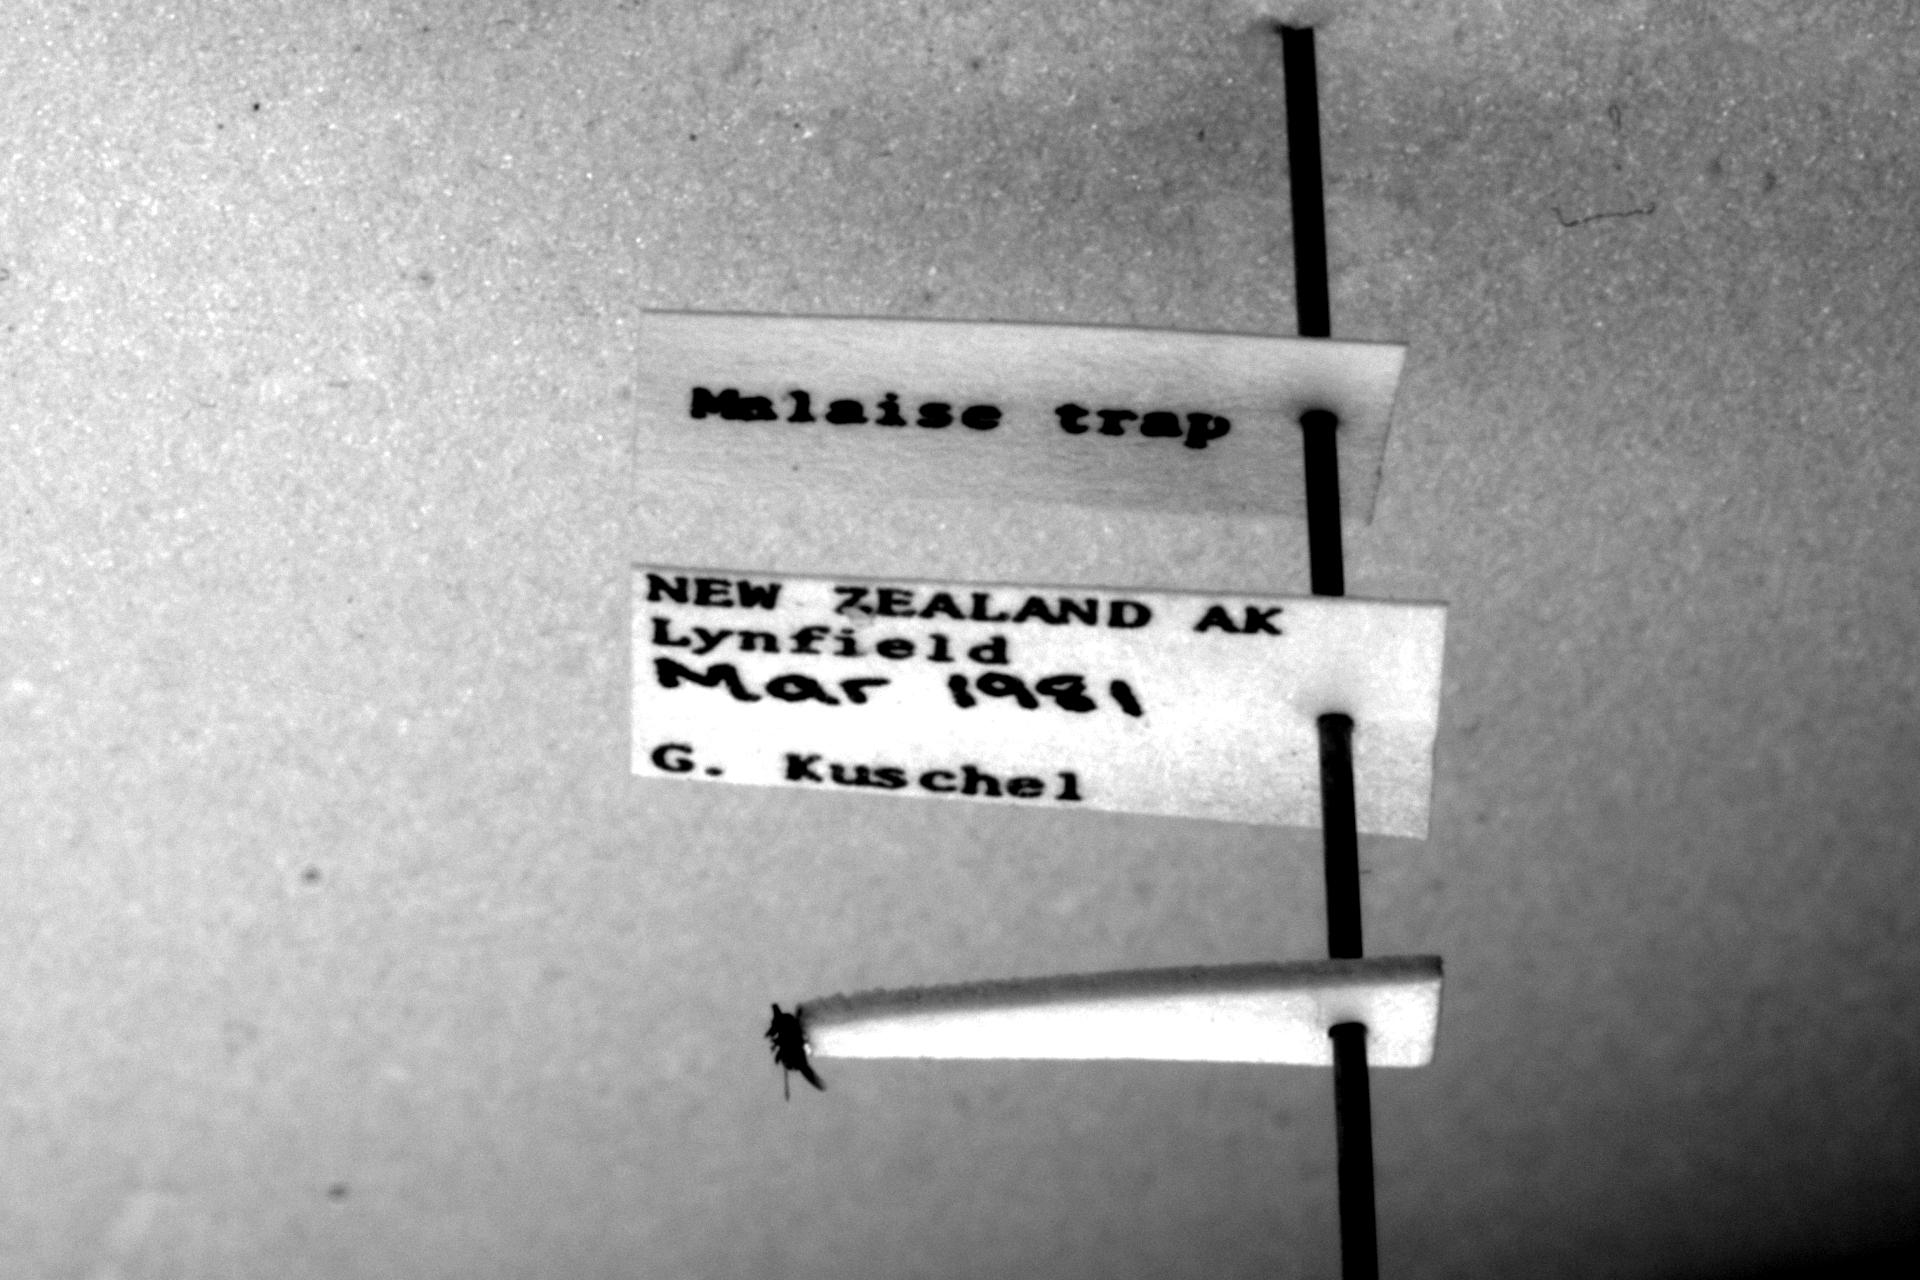 Malaise trap
NEW ZEALAND AK
Lynfield
Mar 1981
G. Kuschel